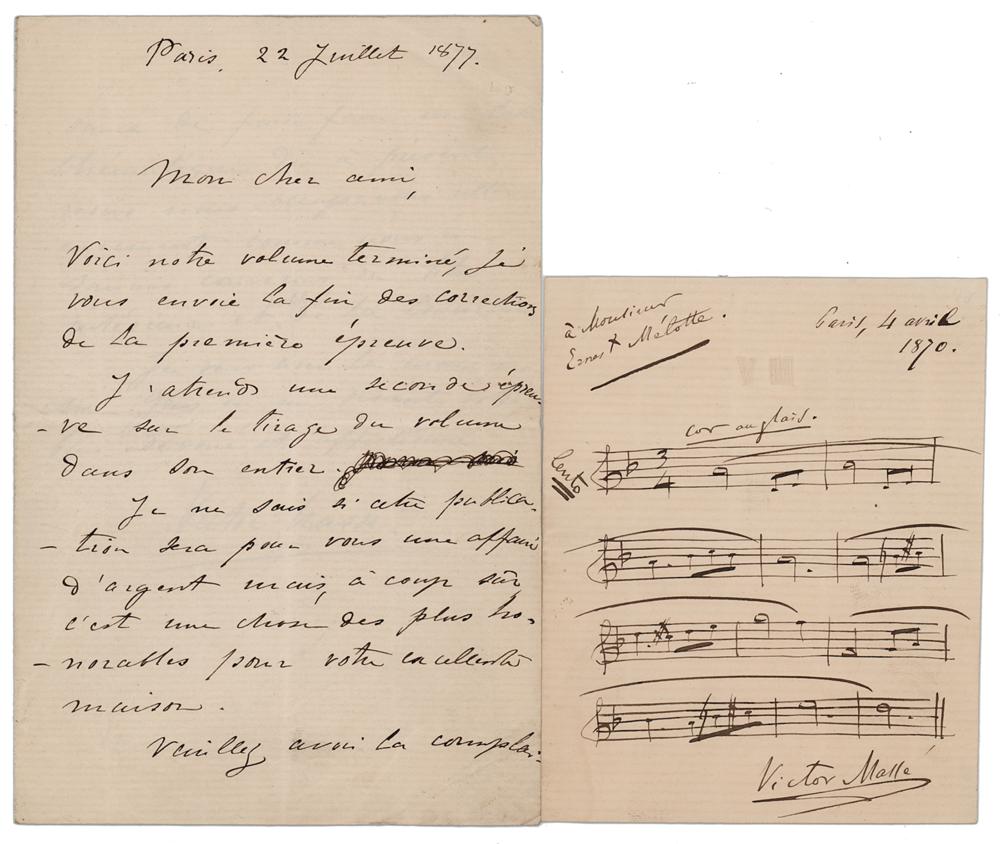 Paris, 22 Juillet 1877.
Mon cher ami,
Voici notre volume terminé, je
vous envoie la fin des corrections
de la première épreuve.
J'attends une seconde épreu-
-ve sur le tirage du volume
dans son entier.
Je ne sais si cette publica-
-tion sera pour vous une affaire
d'argent mais, à coup sûr
c'est une chose des plus ho-
-norables pour votre excellente
maison.
Veuillez avoir la complai-
à Monsieur
Ernest Mélotte.
Paris, 4 avril
1870.
cor anglais.
lento
3
4
Victor Massé